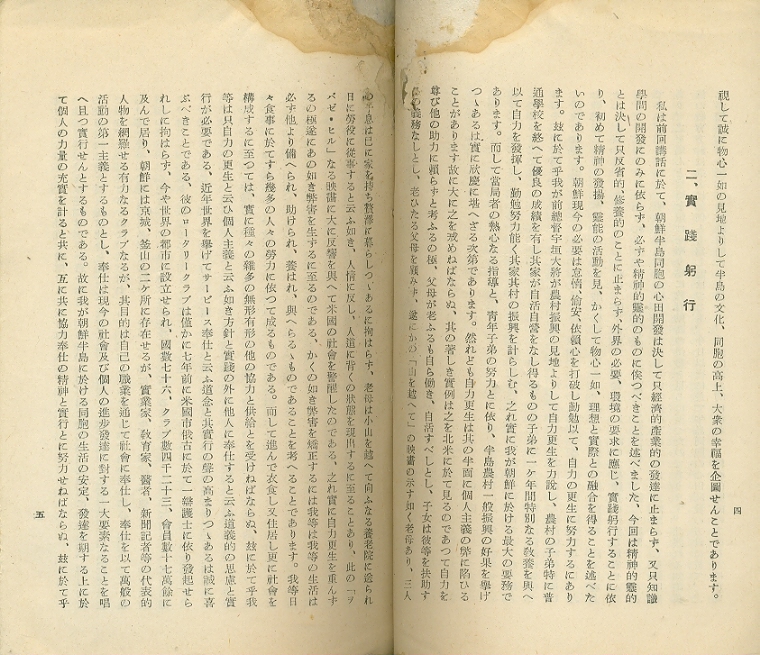 視して誠に物心一如の見地よりして半島の文化、同胞の高上、大衆の幸福を企圖せんことであります。
二、實踐躬行
私は前回講話に於て、朝鮮半島同胞の心田開發は決して只經濟的產業的の發達に止まらず、又只知識
學問の開發にのみに依らず、必ずや精神的靈的のものに俟つべきことを述べました、今回は精神的靈的
とは決して只反省的、修養的のことに止まらず、外界の必要、環境の要求に應じ、實踐躬行することに依
り、初めて精神の發揚、靈能の活動を見、かくして物心一如、理想と實際との融合を得ることを述べた
いのであります。朝鮮現今の必要は怠惰、偸安、依頼心を打破し勤勉以て、自力の更生に努力するにあり
ます。玆に於て乎我が前總督宇垣大將が農村振興の見地よりして自力更生を力說し、農村の子弟特に普
通學校を終へて優良の成績を有し其家が自活自營をなし得るものの子弟に一ケ年間特別なる敎養を與へ
以て自力を發揮し、勤勉努力能く其家其村の振興を計らしむ、之れ實に我が朝鮮に於ける最大の要務で
あります。而して當局者の熱心なる指導と、靑年子弟の努力とに依り、半島農村一般振興の好果を擧げ
つゝあるは實に欣慶に堪へざる次第であります。然れども自力更生は其の半面に個人主義の弊に陷ひる
ことがあります故に大に之を戒めねばならぬ、其の著しき實例は之を北米に於て見るのであつて自力を
尊び他の助力に賴らずと考ふるの極、父母が老ふるも自ら働き、自活すべしとし、子女は彼等を扶助す
の義務なしとし、老ひたる父母を顧みず、遂にかの「山を越へて」の映畫の示す如く老母あり、三人
四
の子息は已に家を持ち豐澤に暮らしつゝあるに拘はらず、老母は小山を越へて向ふなる養老院に送られ
日に勞役に從事すると云ふ如き、人情に反し、人道に背くの狀態を現出するに至ることあり、此の「ヲ
バゼ・ヒル」なる映畫に大に反響を與へて米國の社會を警醒したのである、之れ實に自力更生を重んず
るの極遂にあの如き弊害を生ずるに至るのである、かくの如き弊害を矯正するには我等は我等の生活は
必ず他より備へられ、助けられ、養はれ、與へらるゝものであることを考へることであります。我等日
々食事に於てすら幾多の人々の勞力に依つて成るものである。而して進んで衣食し又住居し更に社會を
構成するに至つては、實に種々の雜多の無形有形の他の協力と供給とを受けねばならぬ、玆に於て乎我
等は只自力の更生と云ひ個人主義と云ふ如き方針と實踐の外に他人に奉仕すると云ふ道義的の思慮と實
行が必要である、近年世界を擧げてサービース奉仕と云ふ道念と其實行の聲の高まりつゝあるは誠に喜
ぶべきことである、彼のロータリークラブは僅かに七年前に米國市俄古に於て一辯護士に依り發起せら
れしに拘はらず、今や世界の都市に設立せられ、國數七十六、クラブ數四千二十三、會員數十七萬餘に
及んで居り、朝鮮には京城、釜山の二ケ所に存在せるが、實業家、敎育家、醫者、新聞記者等の代表的
人物を網羅せる有力なるクラブなるが、其目的は自己の職業を通じて社會に奉仕し、奉仕を以て萬般の
活動の第一主義とするものとし、奉仕は現今の社會及び個人の進步發達に對する一大要素なることを唱
へ且つ實行せんとするものである。故に我が朝鮮半島に於ける同胞の生活の安定、發達を期する上に於
て個人の力量の充實を計ると共に、互に共に協力奉仕の精神と實行とに努力せねばならぬ、玆に於て乎
五